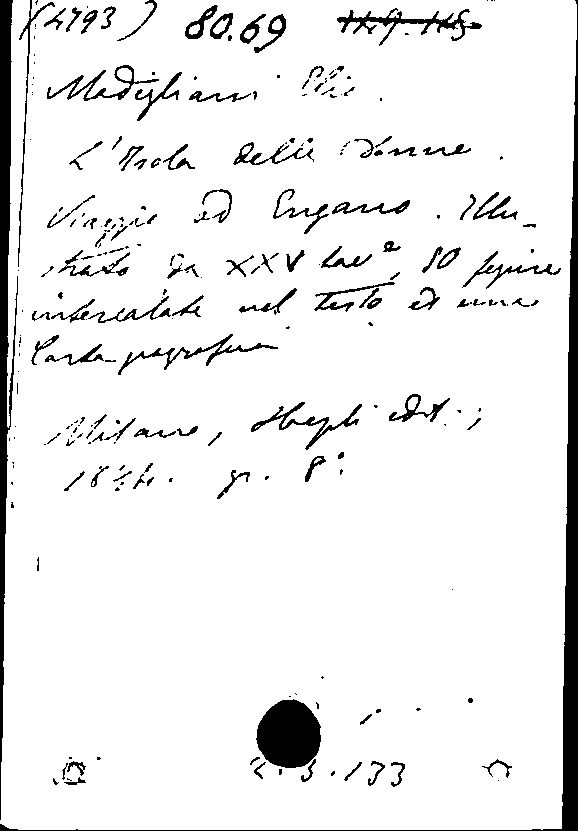 (4793) 80.69
Modigliani Elio.
L'Isola delle Donne.
Viaggio ad Engano. Illu-
strato da XXV tav.e, 50 figure
intercalate nel testo ed una
Carta geografica
Milano, Hoepli edit.;
1894. gr. 8°.
133